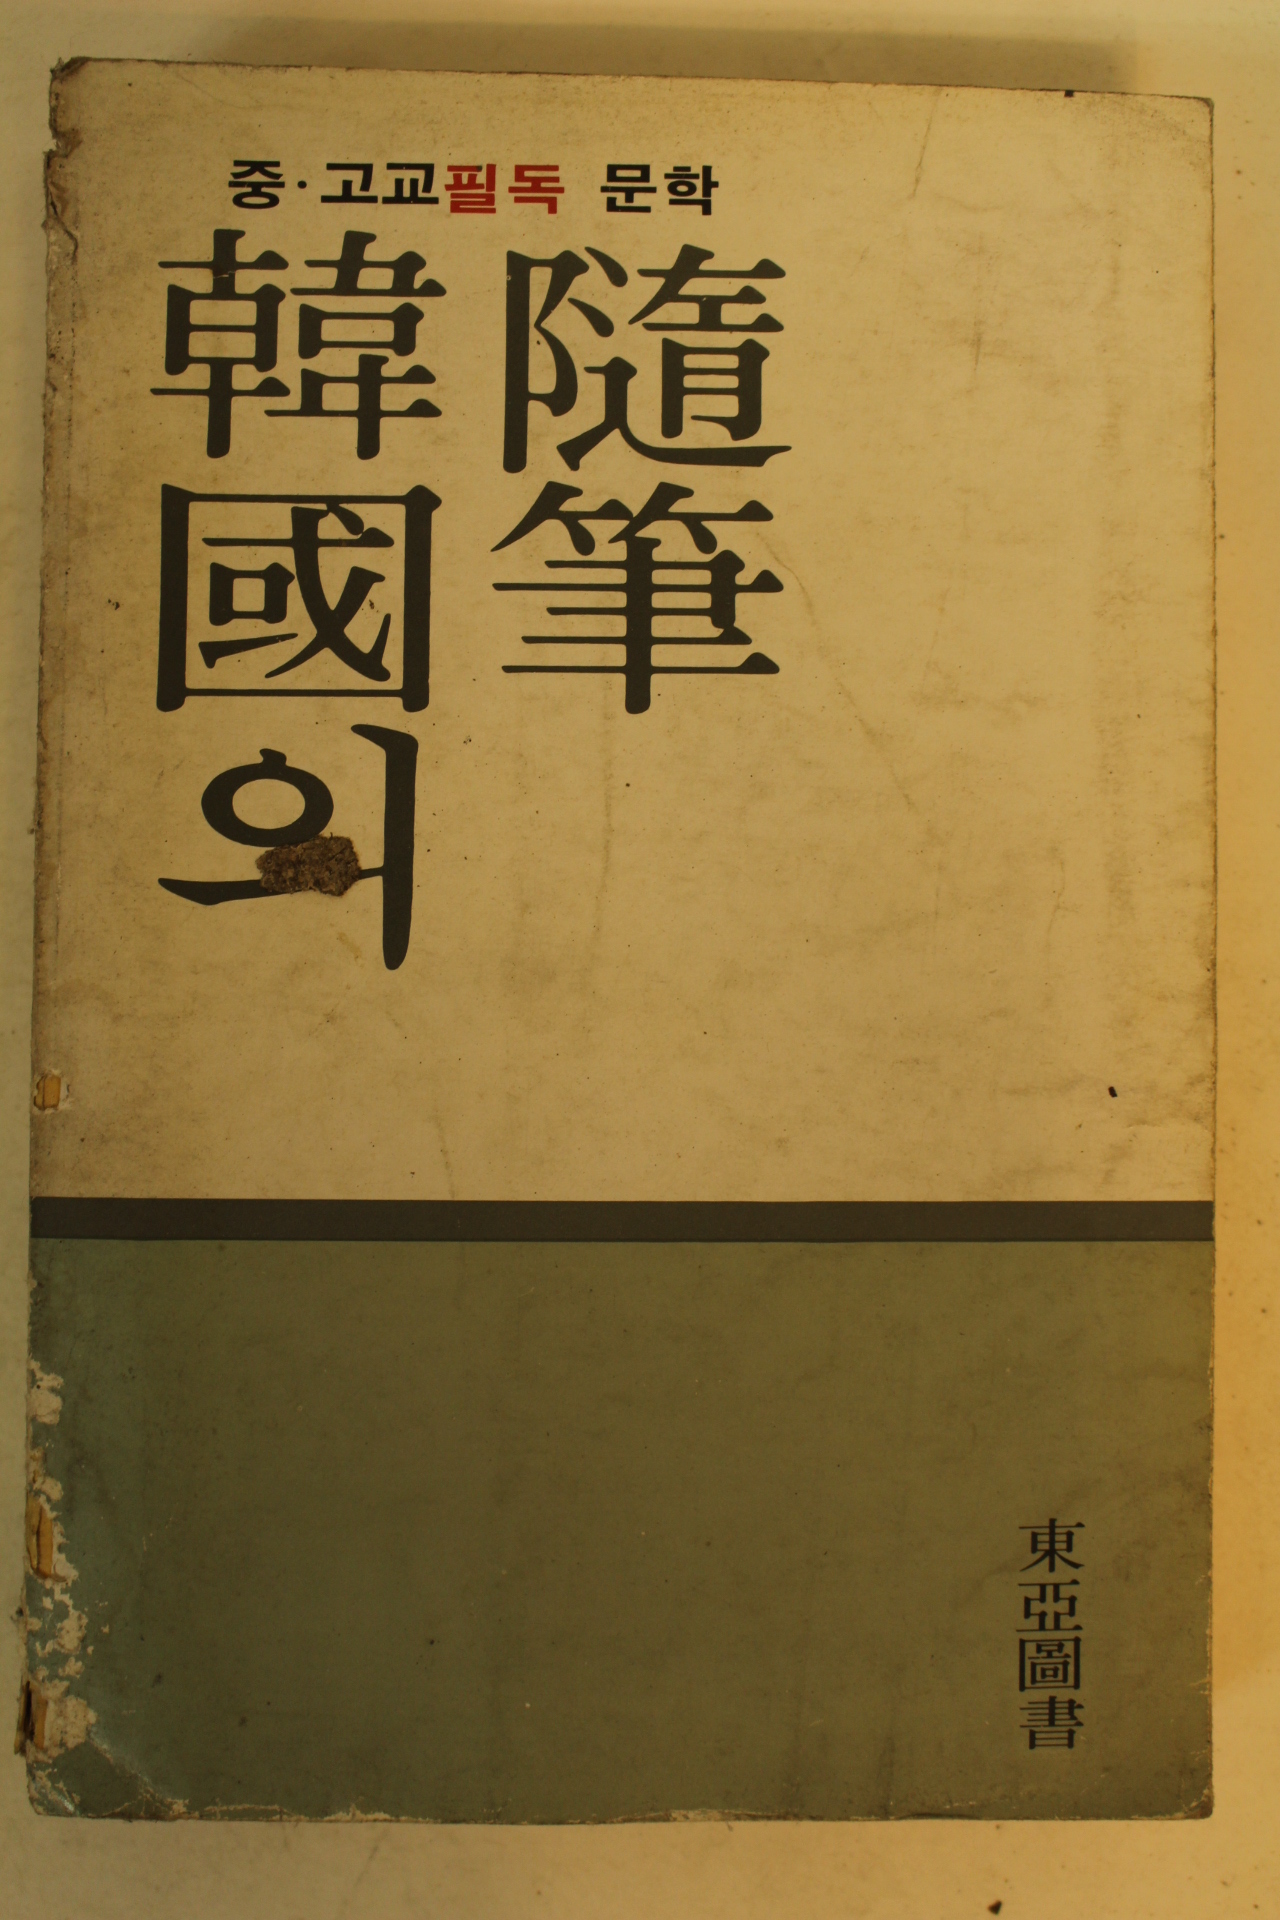 중·고교필독 문학
韓國의
隨筆
東亞圖書